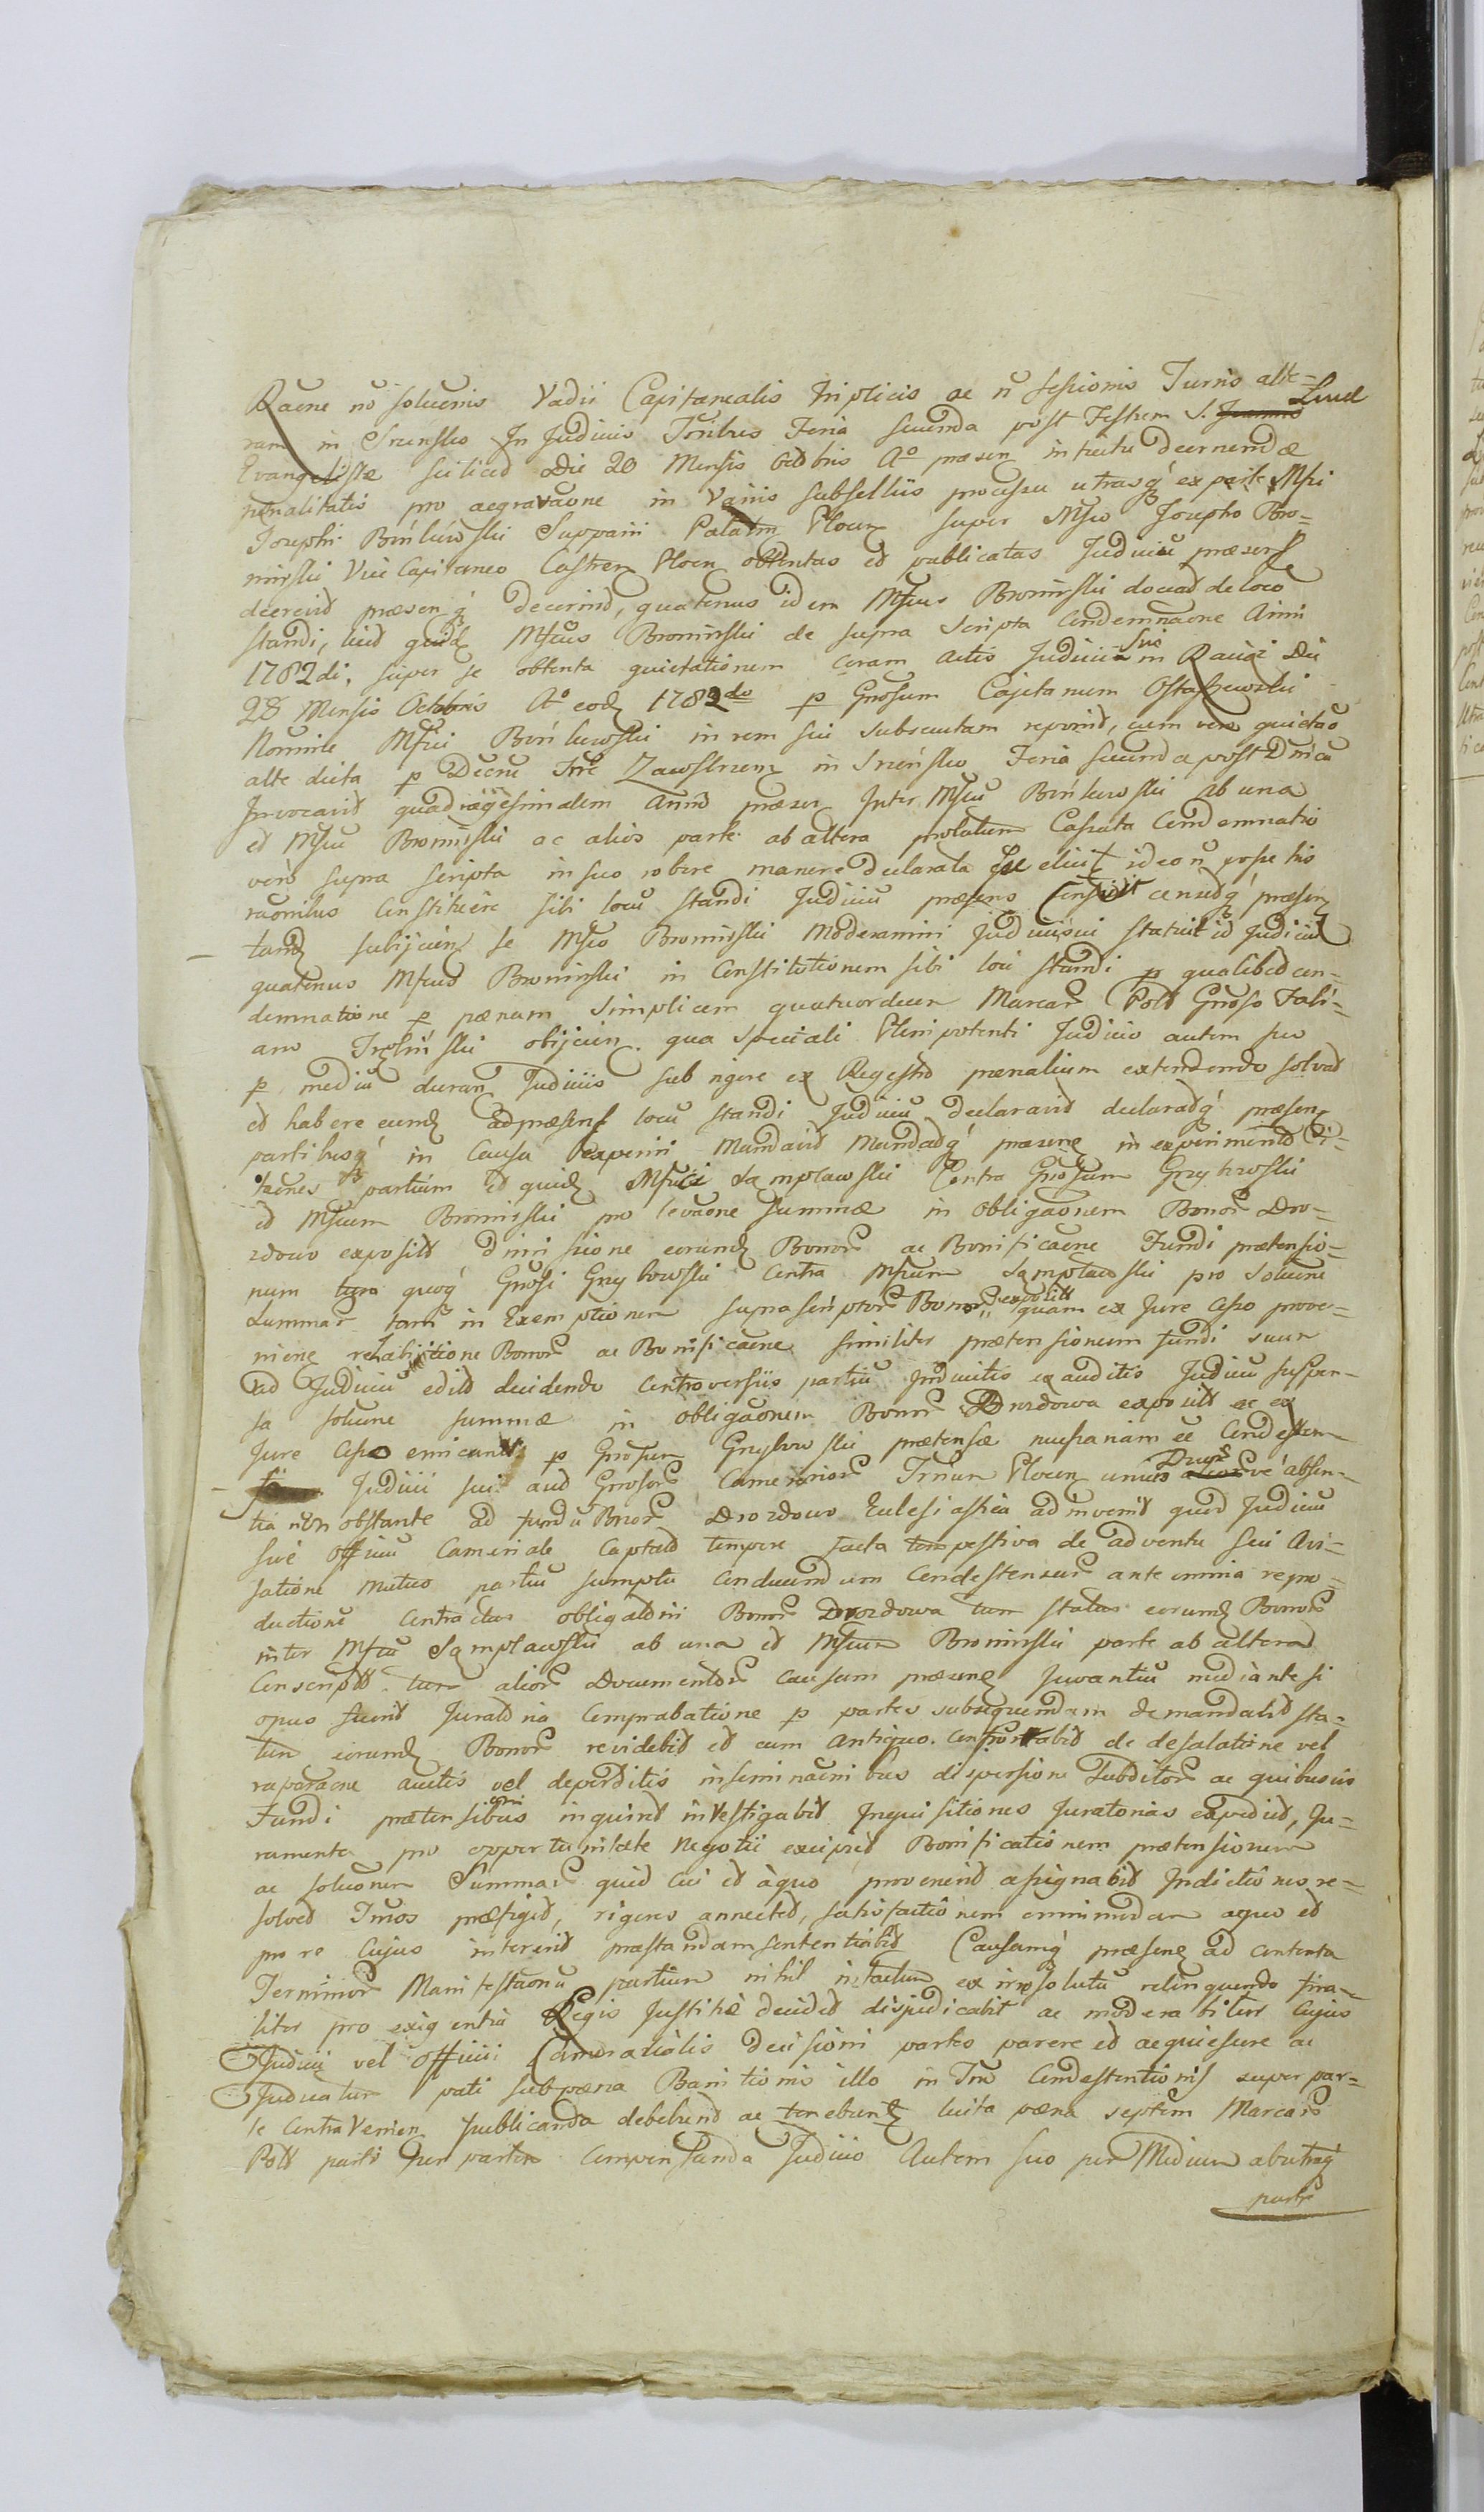 Raone no soluenis Vadii Capitanealis triplicis ac n sessionis Turris alte=
ram in Srensko In Judiciis Tribus Feria Secunda post Festum S. Joannis Lucæ
Evangelistæ scilicet Die 20 Mensis Octobris Ao præsen intuitu decernendæ
pœnalitatis pro aegravaone in Variis subselliis processu utrasq ex parte Mfici
Josephi Bońkowski Supparii Palatin Plocen super Mfico Josepho Bro=
minski Vice Capitaneo Castren Plocen obtentas et publicatas Judiciu præsens
decrevit præsen q decernit, quatenus idem Mficus Brominski doceat de loco
standi, licet quid Mficus Brominski de supra scripta Condemnaone Anni
1782di. super se obtenta quietationem coram Actis Judicii sui in Raciąż Die
28 Mensis Octobris Ao eod 1782do p Gnosum Cajetanum Ostaszewski
Nomine Mfici Bońkowski in rem sui subsecutam reponit, cum vero quietao
alte dicta p Decru Trre Zawskrzen in Sreńsko Feria Secunda post Dnica
Invocavit quadragesimalem Anni præsen Inter Mficu Bońkowski ab una
et Mficu Brominski ac alios parte ab altera prolatum Cassata Condemnatio
vero supra scripta in suo robore manere declarata sse elicit ideo n posse his
raonibus Constituere sibi locu standi Judiciu præsens Censuit censetq præsen
tand subijcien se Mfico Brominski Moderamini Judicii sui statuit id Judiciu
quatenus Mficus Brominski in Constitutionem sibi loci standi p qualibet con=
demnatione p pœnam simplicem quatuordecim Marcar Polt Gnoso Fabi=
ano obijcien. qua speciali Plenipotenti Judicio autem suo
p mediu duran Judiciis sub rigore ex Regestro pœnalium extendendo solvat
et habere eund ad præsens locu standi Judiciu declaravit declaratq præsen
partibusq in Causa experiri Mandavit Mandatq præsens in experimento Ci=
taones partium et quid Mfici Sampławski Contra Gnosum Grzybowski
et Mficum Brominski pro levaone summæ in obligaonem Bonor Dro=
zdowo exposit dimissione eorund Bonor ac Bonificaone Fundi prætensio=
num tum quoq Gnosi Grzybowski Contra Mficum Sampławski pro Soluone
Summar tam in Exemptionem suprascriptor Bonor exposit quam ex Jure cesso prove=
nien rehabitione Bonor ac Bonificaone similiter prætensionum fundi suum
Ad Judiciu edit decidendo Controversiis partiu Invicitis exauditis Judiciu suspen=
sa soluone summæ in obligaonem Bonor Drozdowa exposit ac ex
Jure Cesso emicant p Gnosum Grzybowski prætensæ nuspiam ee Condesten=
si Judicii sui aut Gnosor Camerarior Trrium Plocen unius Duor ve absen=
tia non obstante ad fundu Bnor Drozdowo Eulesiastica adinvenit quod Judiciu
sive Offciu Cameriale Captato tempore facta tempestiva de adventu sui Avi=
satione mutuo partiu sumptu Conducendum Condestensur ante omnia repro=
ductione Contractus obligatorii Bonor Drozdowa tum status eorund Bonor
inter Mficu Sampławski ab una et Mficum Brominski parte ab altera
Conscript tum alior Documentor causam præsen Juvantiu mediante si
opus fuerit Juratoria Comprobatione p partes subsequendam demandabit sta=
tum eorund Bonor revidebit et cum antiquo confrontabit de desolatione vel
raparaone auctis vel deperditis inseminaonibus dispersione Subditor ac quibusvis
Fundi prætensionibus inquiret investigabit Inquisitiones Juratorias expediet, Ju=
ramenta pro opportunitate Negotii excipiet Bonificationem prætensionum
ac soluonem Summar quid cui et à quo provenerit assignabit Indictiones re=
solvet Tmos præfiget, rigores annectet, satisfactionem omnimodam aequo et
pro re cujus intererit præstandam sententiabit Causamq præsen ad contenta
Terminor Manifestaonu partium nihil intactum ex irresolutu relinquendo fina=
liter pro exigentia Legis Justitiæ decidet disjudicabit ac moderabitur cujus
Judicij vel Officii Camerarialis Decisioni partes parere et acquiescere ac
Judicatur pati sub pœna Banitionis illo in Tno Condestentionis super par=
te Contra Venien publicanda debebunt ac tenebunt luita pœna septem Marcar
Polt parti per partem compensanda Judicio Autem suo per Medium ab utraq
parte